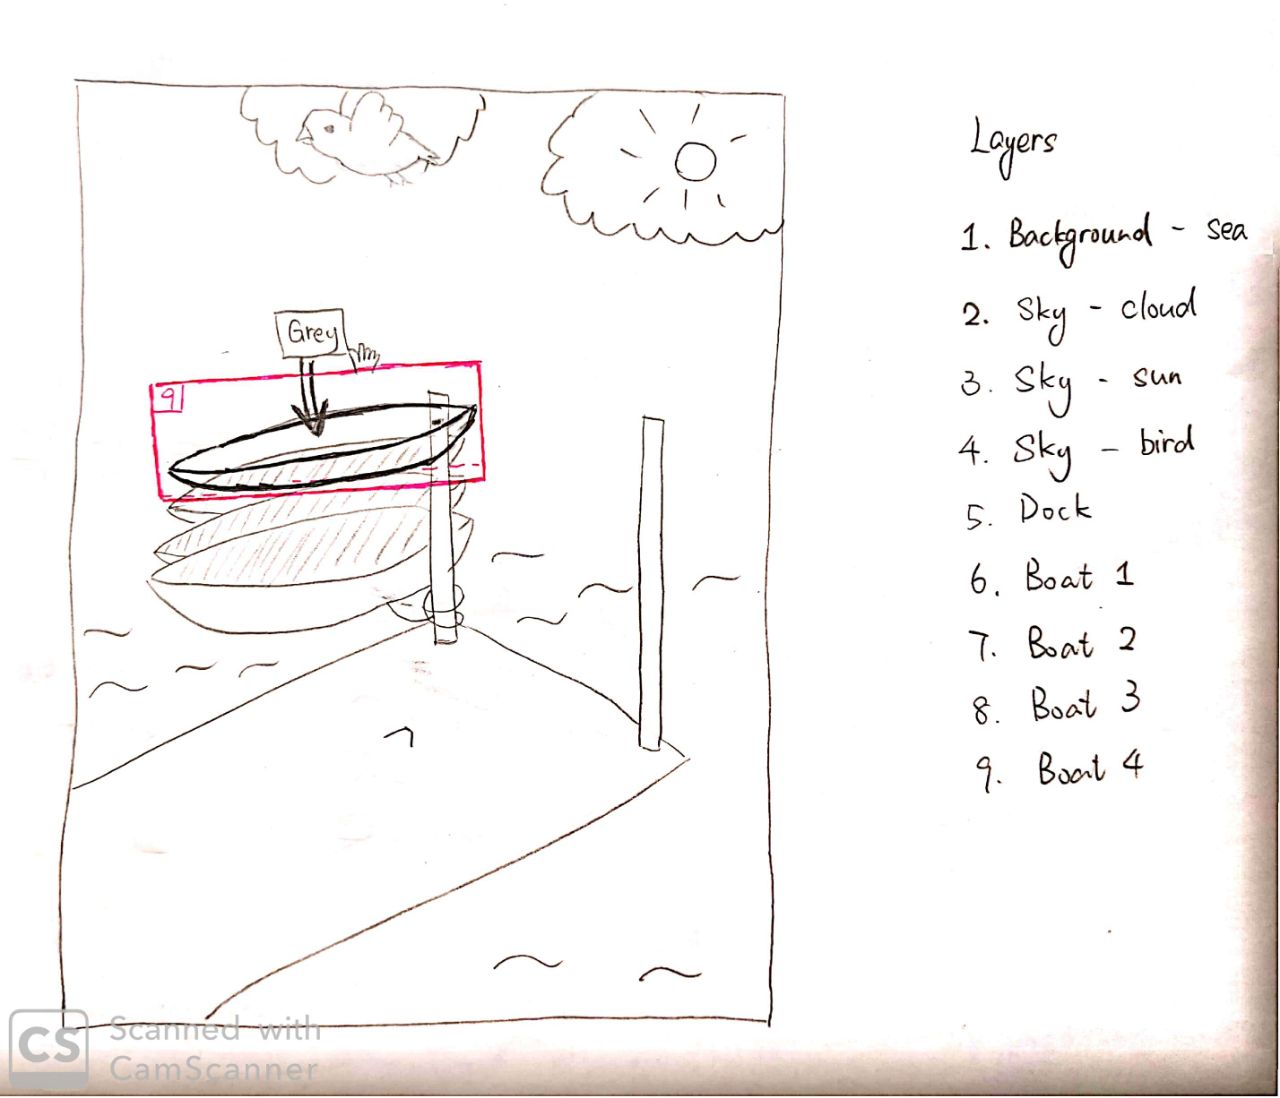 Layers
1. Background - sea
2. Sky - cloud
3. Sky - sun
4. Sky - bird
5. Dock
6. Boat 1
7. Boat 2
8. Boat 3
9. Boat 4
Grey
9
CS
Scanned with
CamScanner